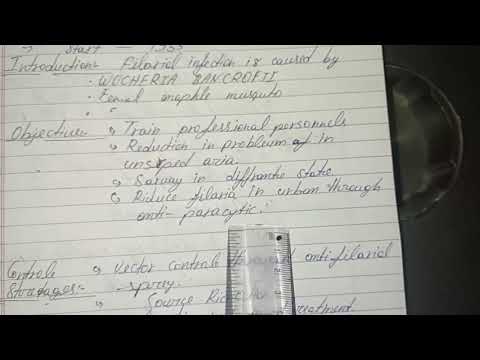 → Start — 1955
Introduction: Filarial infection is caused by
• WUCHERIA BANCROFTI
• Femal anophle musquto
Objective: → Train professional personnels
→ Reduction in problem of in
unsyed aria.
→ Sarvay in diffranche state.
→ Riduce filaria in urban through
anti-paracytic.
Controle → Vector controle through anti-filarial
spray.
→ Sourse
treatment.